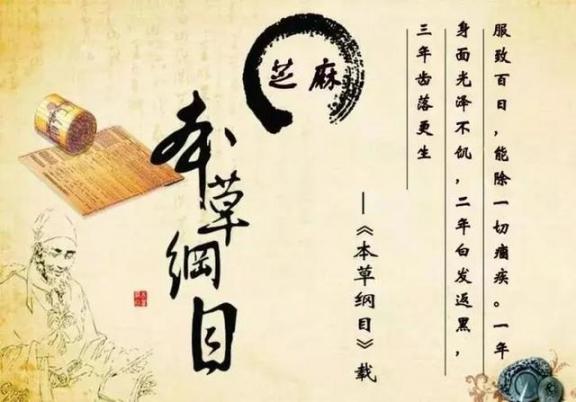 服致百日，能除一切痼疾。一年
身面光泽不饥，二年白发返黑，
三年齿落更生
—《本草纲目》载
芝麻
本草纲目